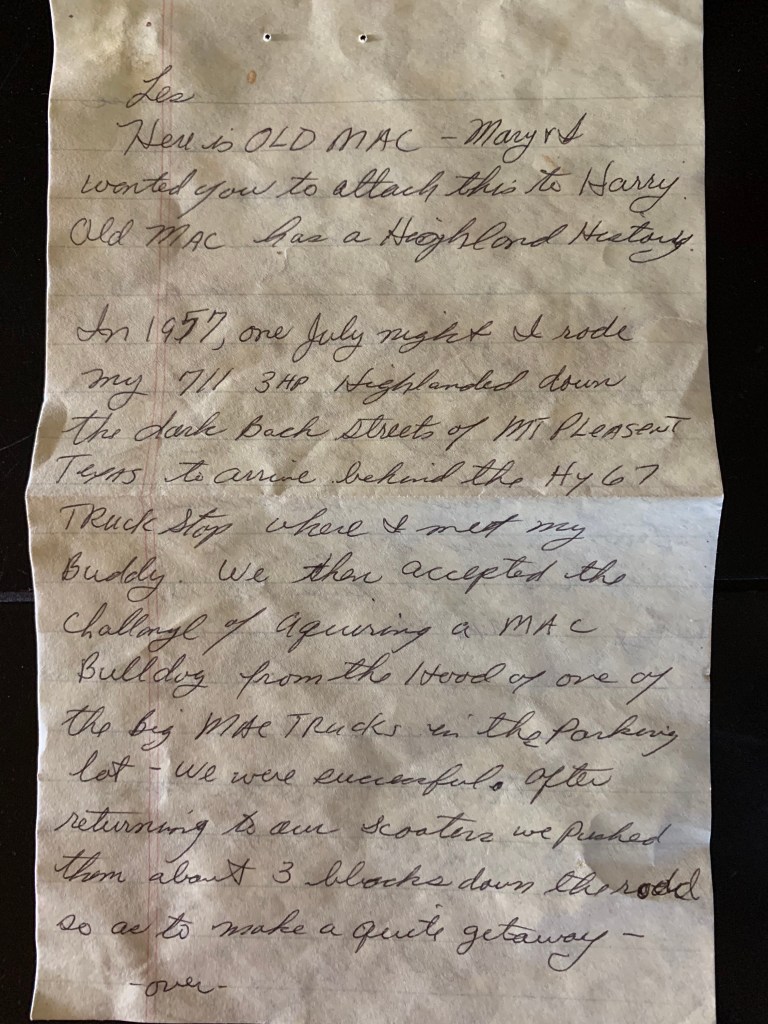 Les
Here is OLD MAC - Mary & I
wanted you to attach this to Harry.
Old MAC has a Highland History.
In 1957, one July night I rode
my 711 3HP Highlanded down
the dark Back Streets of MT PLEASENT
TEXAS to arrive behind the Hy 67
TRUCK Stop where I met my
Buddy. We then accepted the
challange of aquiring a MAC
Bulldog from the Hood of one of
the big MAC TRUCKS in the Parking
lot - We were successful. After
returning to our scooters we pushed
them about 3 blocks down the rode
so as to make a quite getaway -
- over -